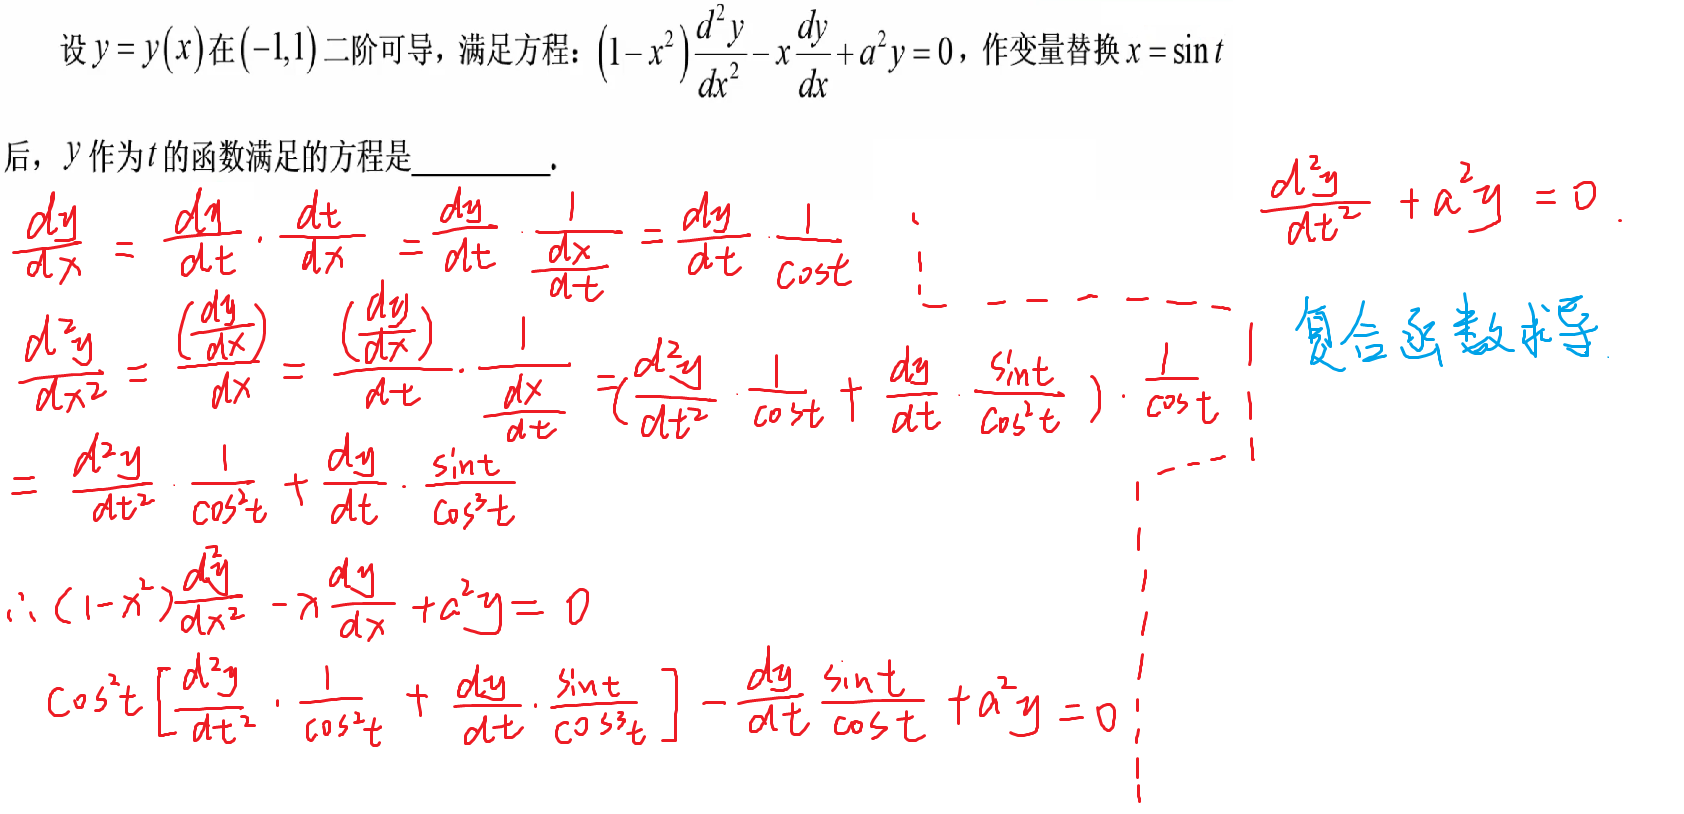 设 y = y(x) 在 (−1,1) 二阶可导，满足方程：(1−x²) d²y/dx² − x dy/dx + a²y = 0，作变量替换 x = sin t
后，y 作为 t 的函数满足的方程是__________.
dy/dx = dy/dt · dt/dx = dy/dt · 1/(dx/dt) = dy/dt · 1/cost
d²y/dx² = (dy/dx)/dx = (dy/dx)/dt · 1/(dx/dt) = (d²y/dt² · 1/cost + dy/dt · sint/cos²t) · 1/cost
= d²y/dt² · 1/cos²t + dy/dt · sint/cos³t
∴ (1−x²) d²y/dx² − x dy/dx + a²y = 0
cos²t [d²y/dt² · 1/cos²t + dy/dt · sint/cos³t] − dy/dt sint/cost + a²y = 0
d²y/dt² + a²y = 0.
复合函数求导.